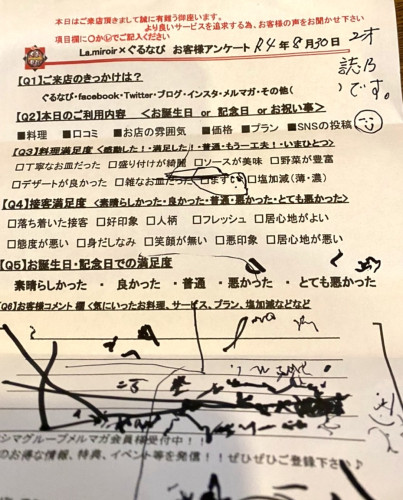 本日はご来店頂きまして誠に有難う御座います。
より良いサービスを追求する為、お客様の声をお聞かせ下さい
項目欄に〇か㋹でご記入ください
La.miroir×ぐるなび お客様アンケート R4年8月30日
です。
【Q1】ご来店のきっかけは?
ぐるなび・facebook・Twitter・ブログ・インスタ・メルマガ・その他(
【Q2】本日のご利用内容 <お誕生日 or 記念日 or お祝い事>
■料理 ■口コミ ■お店の雰囲気 ■価格 ■プラン ■SNSの投稿
【Q3】料理満足度 <感動した!・満足した!・普通・もう一工夫!・いまひとつ>
□丁寧なお皿だった □盛り付けが綺麗 □ソースが美味 □野菜が豊富
□デザートが良かった □雑なお皿だった □まずい □塩加減(薄・濃)
【Q4】接客満足度 <素晴らしかった・良かった・普通・悪かった・とても悪かった>
□落ち着いた接客 □好印象 □人柄 □フレッシュ □居心地がよい
□態度が悪い □身だしなみ □笑顔が無い □悪印象 □居心地が悪い
【Q5】お誕生日・記念日での満足度
素晴らしかった ・ 良かった ・ 普通 ・ 悪かった ・ とても悪かった
【Q6】お客様コメント欄<気にいったお料理、サービス、プラン、塩加減などなど
シマグループメルマガ会員様受付中!!
のお得な情報、特典、イベント等を発信!!ぜひぜひご登録下さい♪